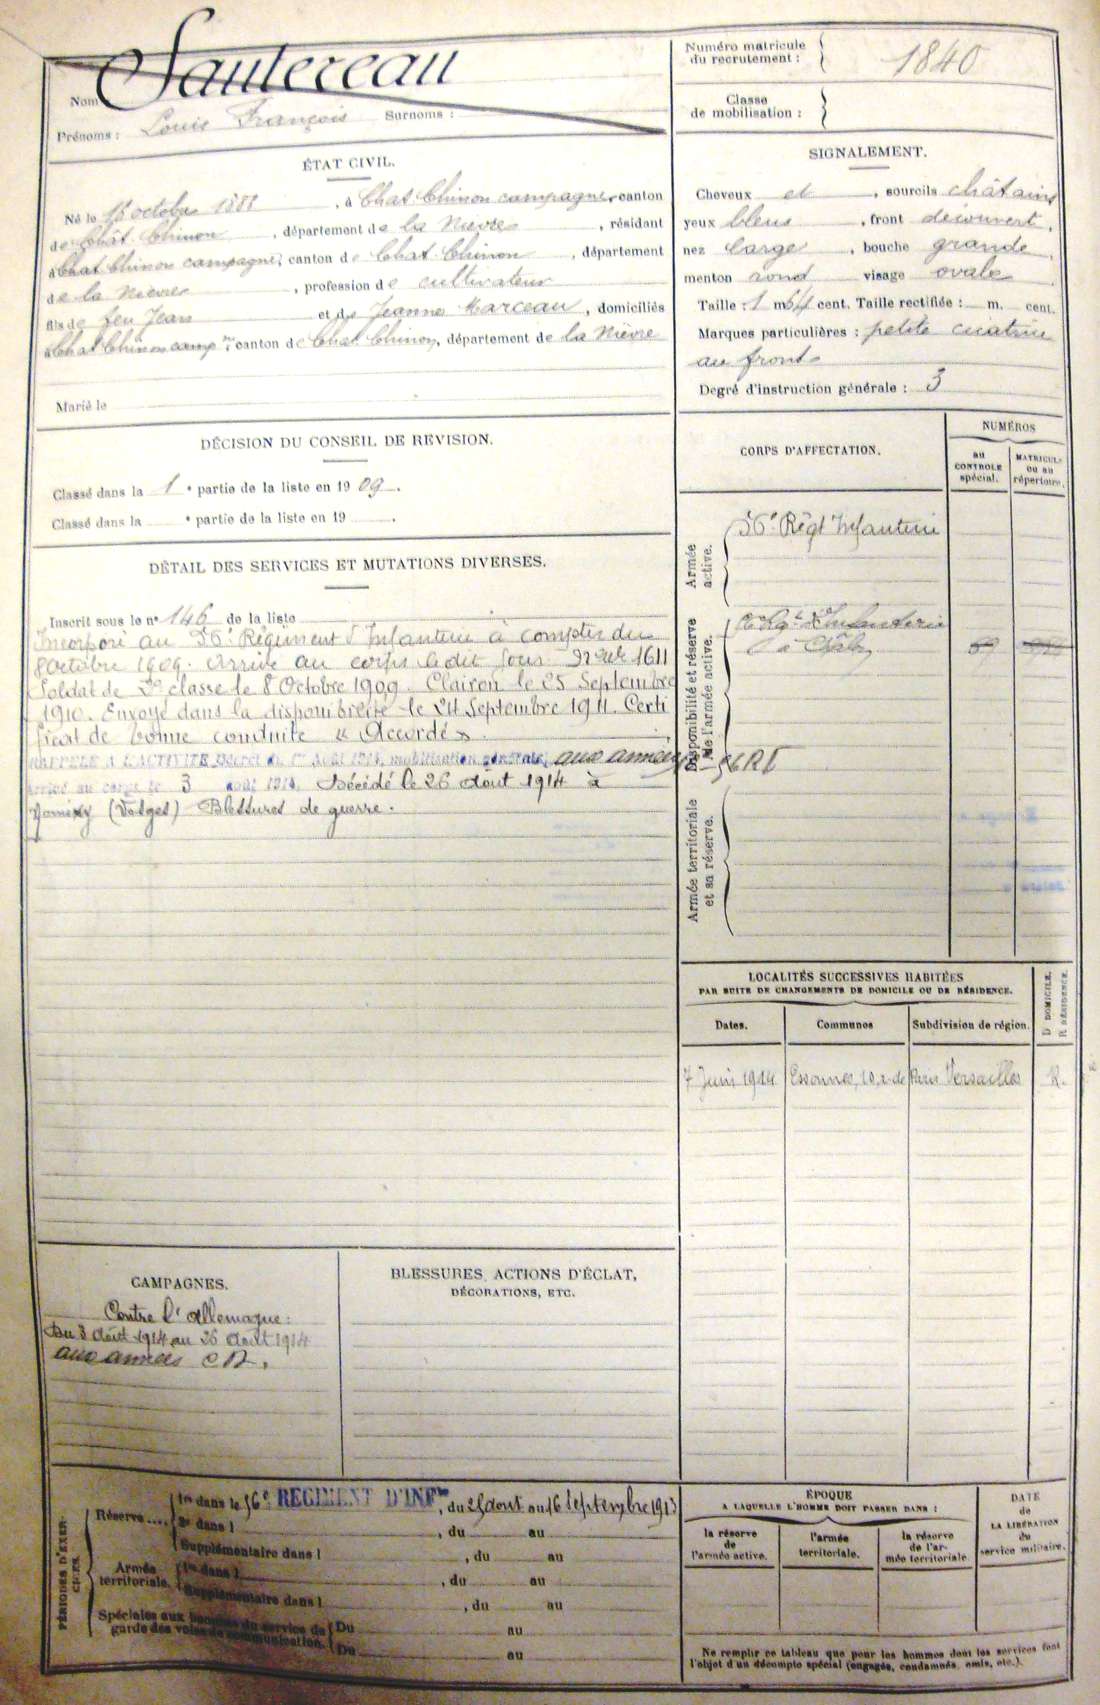 Nom Sautereau
Prénoms : Louis François Surnoms :
Numéro matricule du recrutement : 1840
Classe de mobilisation :
ÉTAT CIVIL.
Né le 16 octobre 1888, à Chat Chinon campagne, canton
de Chât. Chinon, département de la Nièvre, résidant
à Chat Chinon campagne, canton de Chat. Chinon, département
de la Nièvre, profession de cultivateur
fils de feu Jean et de Jeanne Marceau, domiciliés
à Chat Chinon camp ne, canton de Chat Chinon, département de la Nièvre
Marié le
SIGNALEMENT.
Cheveux et, sourcils châtains
yeux bleus, front découvert,
nez large, bouche grande,
menton rond visage ovale
Taille : 1 m 64 cent. Taille rectifiée : m. cent.
Marques particulières : petite cicatrice
au front
Degré d'instruction générale : 3
DÉCISION DU CONSEIL DE REVISION.
Classé dans la 1 e partie de la liste en 1909.
Classé dans la e partie de la liste en 19 .
DÉTAIL DES SERVICES ET MUTATIONS DIVERSES.
Inscrit sous le n° 146 de la liste
Incorporé au 56e Régiment d'Infanterie à compter du
8 Octobre 1909. Arrivé au corps le dit jour. 1611
Soldat de 2e classe le 8 Octobre 1909. Clairon le 25 Septembre
1910. Envoyé dans la disponibilité le 24 Septembre 1911. Certi
ficat de bonne conduite « Accordé ».
RAPPELÉ A L'ACTIVITÉ Décret du 1er Août 1914, mobilisation générale, aux armées
Arrivé au corps le 3 août 1914. Décédé le 26 Août 1914 à
(Vosges) Blessures de guerre.
CORPS D'AFFECTATION.
NUMÉROS
au CONTROLE spécial.
MATRICULE ou au répertoire.
Armée active.
56e Régt Infanterie
Disponibilité et réserve de l'armée active.
Rgt d'Infanterie
à
56 RI
Armée territoriale et sa réserve.
LOCALITÉS SUCCESSIVES HABITÉES
PAR SUITE DE CHANGEMENTS DE DOMICILE OU DE RÉSIDENCE.
Dates. Communes Subdivision de région. D DOMICILE. R RÉSIDENCE.
7 Juin 1914 Essonnes, 10, r. de Paris Versailles R.
CAMPAGNES.
Contre l'Allemagne :
Du 3 Août 1914 au 26 Août 1914
aux armées
BLESSURES, ACTIONS D'ÉCLAT,
DÉCORATIONS, ETC.
PÉRIODES D'EXERCICES.
Réserve ....
1re dans le 56e RÉGIMENT D'INFie, du 25 aout au 16 Septembre 1913
2e dans l , du au
Supplémentaire dans l , du au
Armée territoriale.
1re dans l , du au
Supplémentaire dans l , du au
Spéciales aux hommes du service de garde des voies de communication.
Du au
Du au
ÉPOQUE
A LAQUELLE L'HOMME DOIT PASSER DANS :
la réserve de l'armée active.
l'armée territoriale.
la réserve de l'armée territoriale
DATE de LA LIBÉRATION du service militaire.
Ne remplir ce tableau que pour les hommes dont les services font
l'objet d'un décompte spécial (engagés, condamnés, omis, etc.).